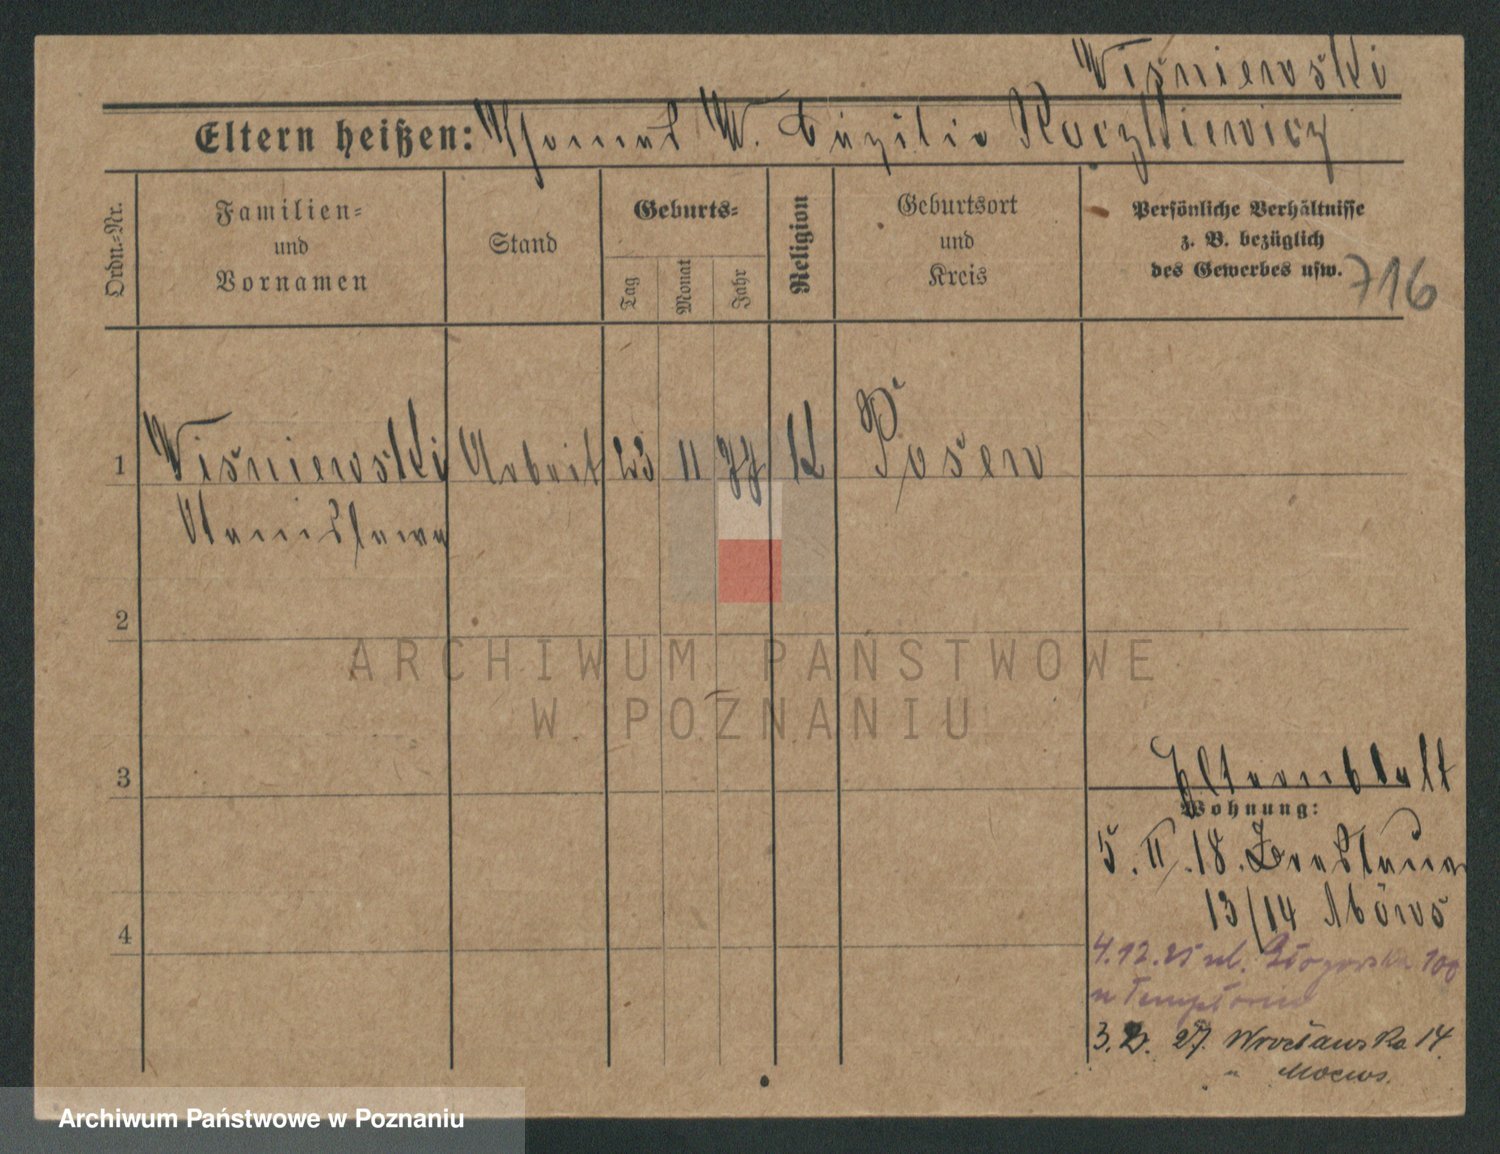 Wiśniewski
Eltern heißen: Thomas W. Cäzilie Raczkiewicz
Ordn.-Nr.
Familien-
und
Vornamen
Stand
Geburts-
Tag
Monat
Jahr
Religion
Geburtsort
und
Kreis
Persönliche Verhältnisse
z. B. bezüglich
des Gewerbes usw.
716
1
Wiśniewski Arbeit 23 11 99 K Posen
Stanislawa
2
ARCHIWUM PAŃSTWOWE
W POZNANIU
3
Elternblatt
Wohnung:
5. II. 18. Breslauer
13/14
4
4.12.25 ul. Głogowska 100
u
3. 27. Wrocławska 14.
u
Archiwum Państwowe w Poznaniu